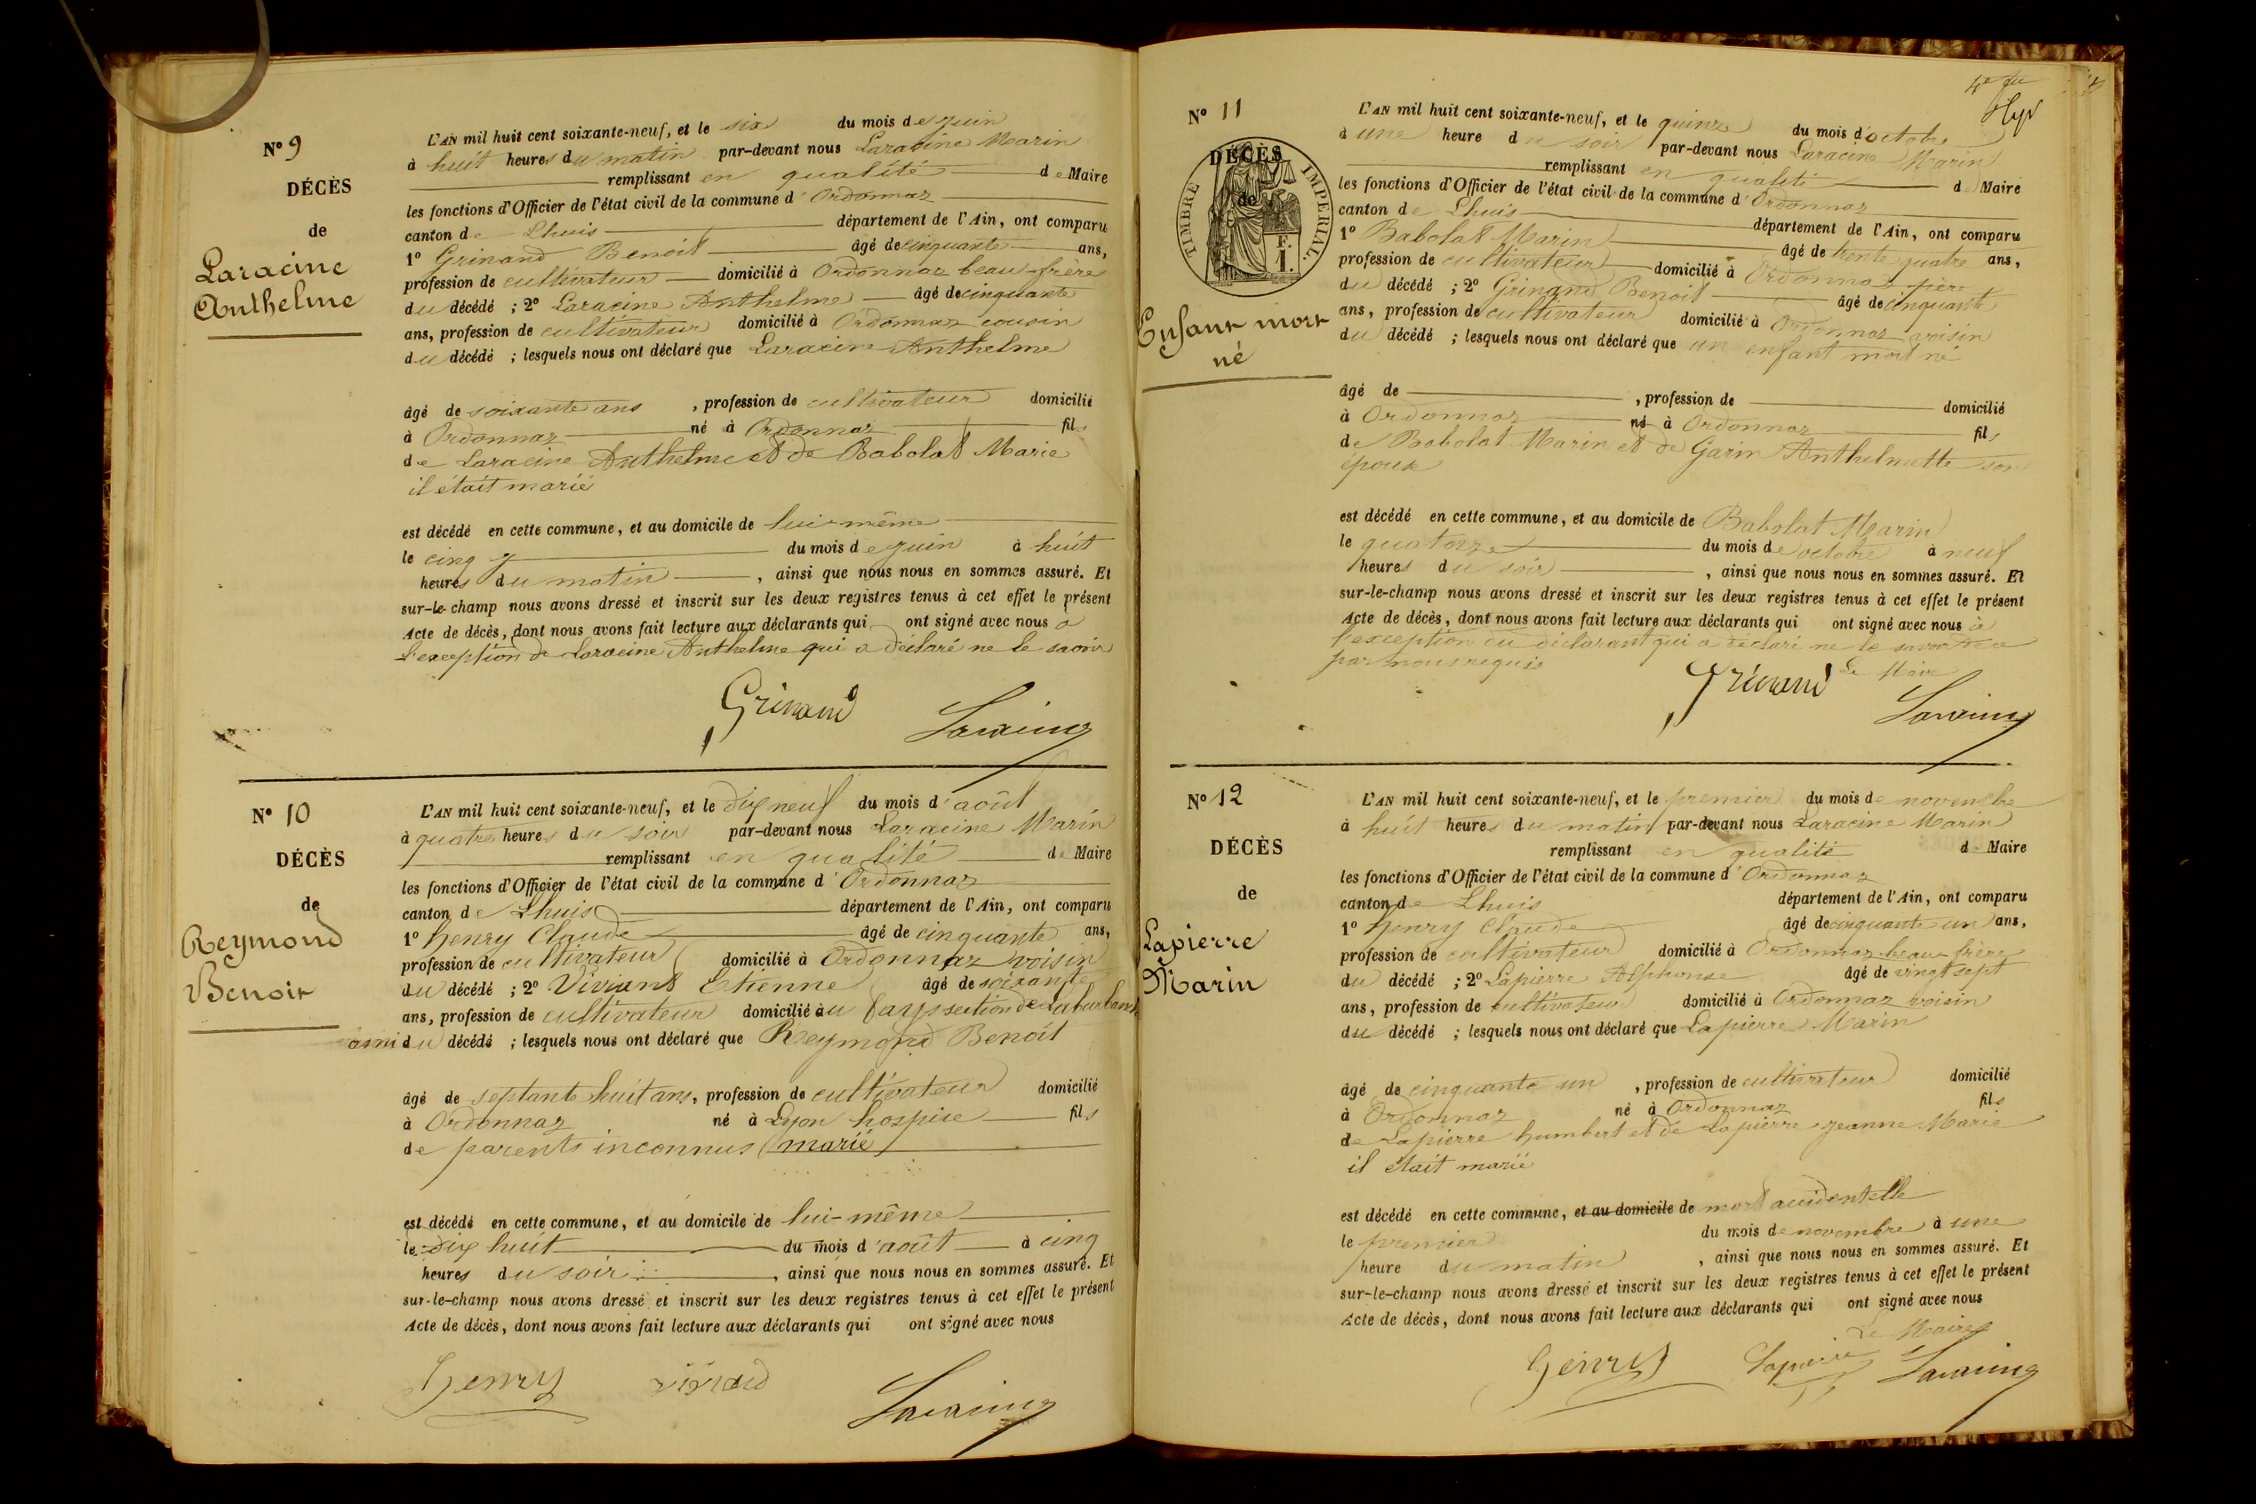 N° 9
DÉCÈS
de
Laracine
Anthelme
L'AN mil huit cent soixante-neuf, et le six du mois de juin
à huit heures du matin par-devant nous Laracine Marin
remplissant en qualité de Maire
les fonctions d'Officier de l'état civil de la commune d'Ordonnaz
canton de Lhuis département de l'Ain, ont comparu
1° Grinand Benoit âgé de cinquante ans,
profession de cultivateur domicilié à Ordonnaz beau-frère
du décédé ; 2° Laracine Anthelme âgé de cinquante
ans, profession de cultivateur domicilié à Ordonnaz cousin
du décédé ; lesquels nous ont déclaré que Laracine Anthelme
âgé de soixante ans , profession de cultivateur domicilié
à Ordonnaz né à Ordonnaz fils
de Laracine Anthelme et de Babolat Marie
il était marié
est décédé en cette commune, et au domicile de lui-même
le cinq du mois de juin à huit
heures du matin , ainsi que nous nous en sommes assuré. Et
sur-le-champ nous avons dressé et inscrit sur les deux registres tenus à cet effet le présent
Acte de décès, dont nous avons fait lecture aux déclarants qui ont signé avec nous a
l'exception de Laracine Anthelme qui a déclaré ne le savoir
Grinand Laracine
N° 10
DÉCÈS
de
Reymond
Benoit
L'AN mil huit cent soixante-neuf, et le dix neuf du mois d'août
à quatre heures du soir par-devant nous Laracine Marin
remplissant en qualité de Maire
les fonctions d'Officier de l'état civil de la commune d'Ordonnaz
canton de Lhuis département de l'Ain, ont comparu
1° henry Claude âgé de cinquante ans,
profession de cultivateur domicilié à Ordonnaz voisin
du décédé ; 2° Viviant Etienne âgé de soixante
ans, profession de cultivateur domicilié au fays section de
ami du décédé ; lesquels nous ont déclaré que Reymond Benoit
âgé de septante huit ans, profession de cultivateur domicilié
à Ordonnaz né à Lyon hospice fils
de parents inconnus marié
est décédé en cette commune, et au domicile de lui-même
le dix huit du mois d'août à cinq
heures du soir , ainsi que nous nous en sommes assuré. Et
sur-le-champ nous avons dressé et inscrit sur les deux registres tenus à cet effet le présent
Acte de décès, dont nous avons fait lecture aux déclarants qui ont signé avec nous
henry Laracine
4e
N° 11
DÉCÈS
de
TIMBRE IMPÉRIAL.
F.
1.
Enfant mort
né
L'AN mil huit cent soixante-neuf, et le quinze du mois d'octobre
à une heure du soir par-devant nous Laracine Marin
remplissant en qualité de Maire
les fonctions d'Officier de l'état civil de la commune d'Ordonnaz
canton de Lhuis département de l'Ain, ont comparu
1° Babolat Marin âgé de trente quatre ans,
profession de cultivateur domicilié à Ordonnaz père
du décédé ; 2° Grinand Benoit âgé de cinquante
ans, profession de cultivateur domicilié à Ordonnaz voisin
du décédé ; lesquels nous ont déclaré que un enfant mort né
âgé de , profession de domicilié
à Ordonnaz né à Ordonnaz fils
de Babolat Marin et de Garin Anthelmette son
épouse
est décédé en cette commune, et au domicile de Babolat Marin
le quatorze du mois de octobre à neuf
heures du soir , ainsi que nous nous en sommes assuré. Et
sur-le-champ nous avons dressé et inscrit sur les deux registres tenus à cet effet le présent
Acte de décès, dont nous avons fait lecture aux déclarants qui ont signé avec nous à
l'exception du déclarant qui a déclaré ne le savoir
par nous requis
Le Maire
Grinand Laracine
N° 12
DÉCÈS
de
Lapierre
Marin
L'AN mil huit cent soixante-neuf, et le premier du mois de novembre
à huit heures du matin par-devant nous Laracine Marin
remplissant en qualité de Maire
les fonctions d'Officier de l'état civil de la commune d'Ordonnaz
canton de Lhuis département de l'Ain, ont comparu
1° henry Claude âgé de cinquante un ans,
profession de cultivateur domicilié à Ordonnaz beau frère
du décédé ; 2° Lapierre Alphonse âgé de vingt sept
ans, profession de cultivateur domicilié à Ordonnaz voisin
du décédé ; lesquels nous ont déclaré que Lapierre Marin
âgé de cinquante un , profession de cultivateur domicilié
à Ordonnaz né à Ordonnaz fils
de Lapierre humbert et de Lapierre jeanne Marie
il était marié
est décédé en cette commune, et au domicile de mort accidentelle
le premier du mois de novembre à une
heure du matin , ainsi que nous nous en sommes assuré. Et
sur-le-champ nous avons dressé et inscrit sur les deux registres tenus à cet effet le présent
Acte de décès, dont nous avons fait lecture aux déclarants qui ont signé avec nous
Le Maire
henry Lapierre Laracine